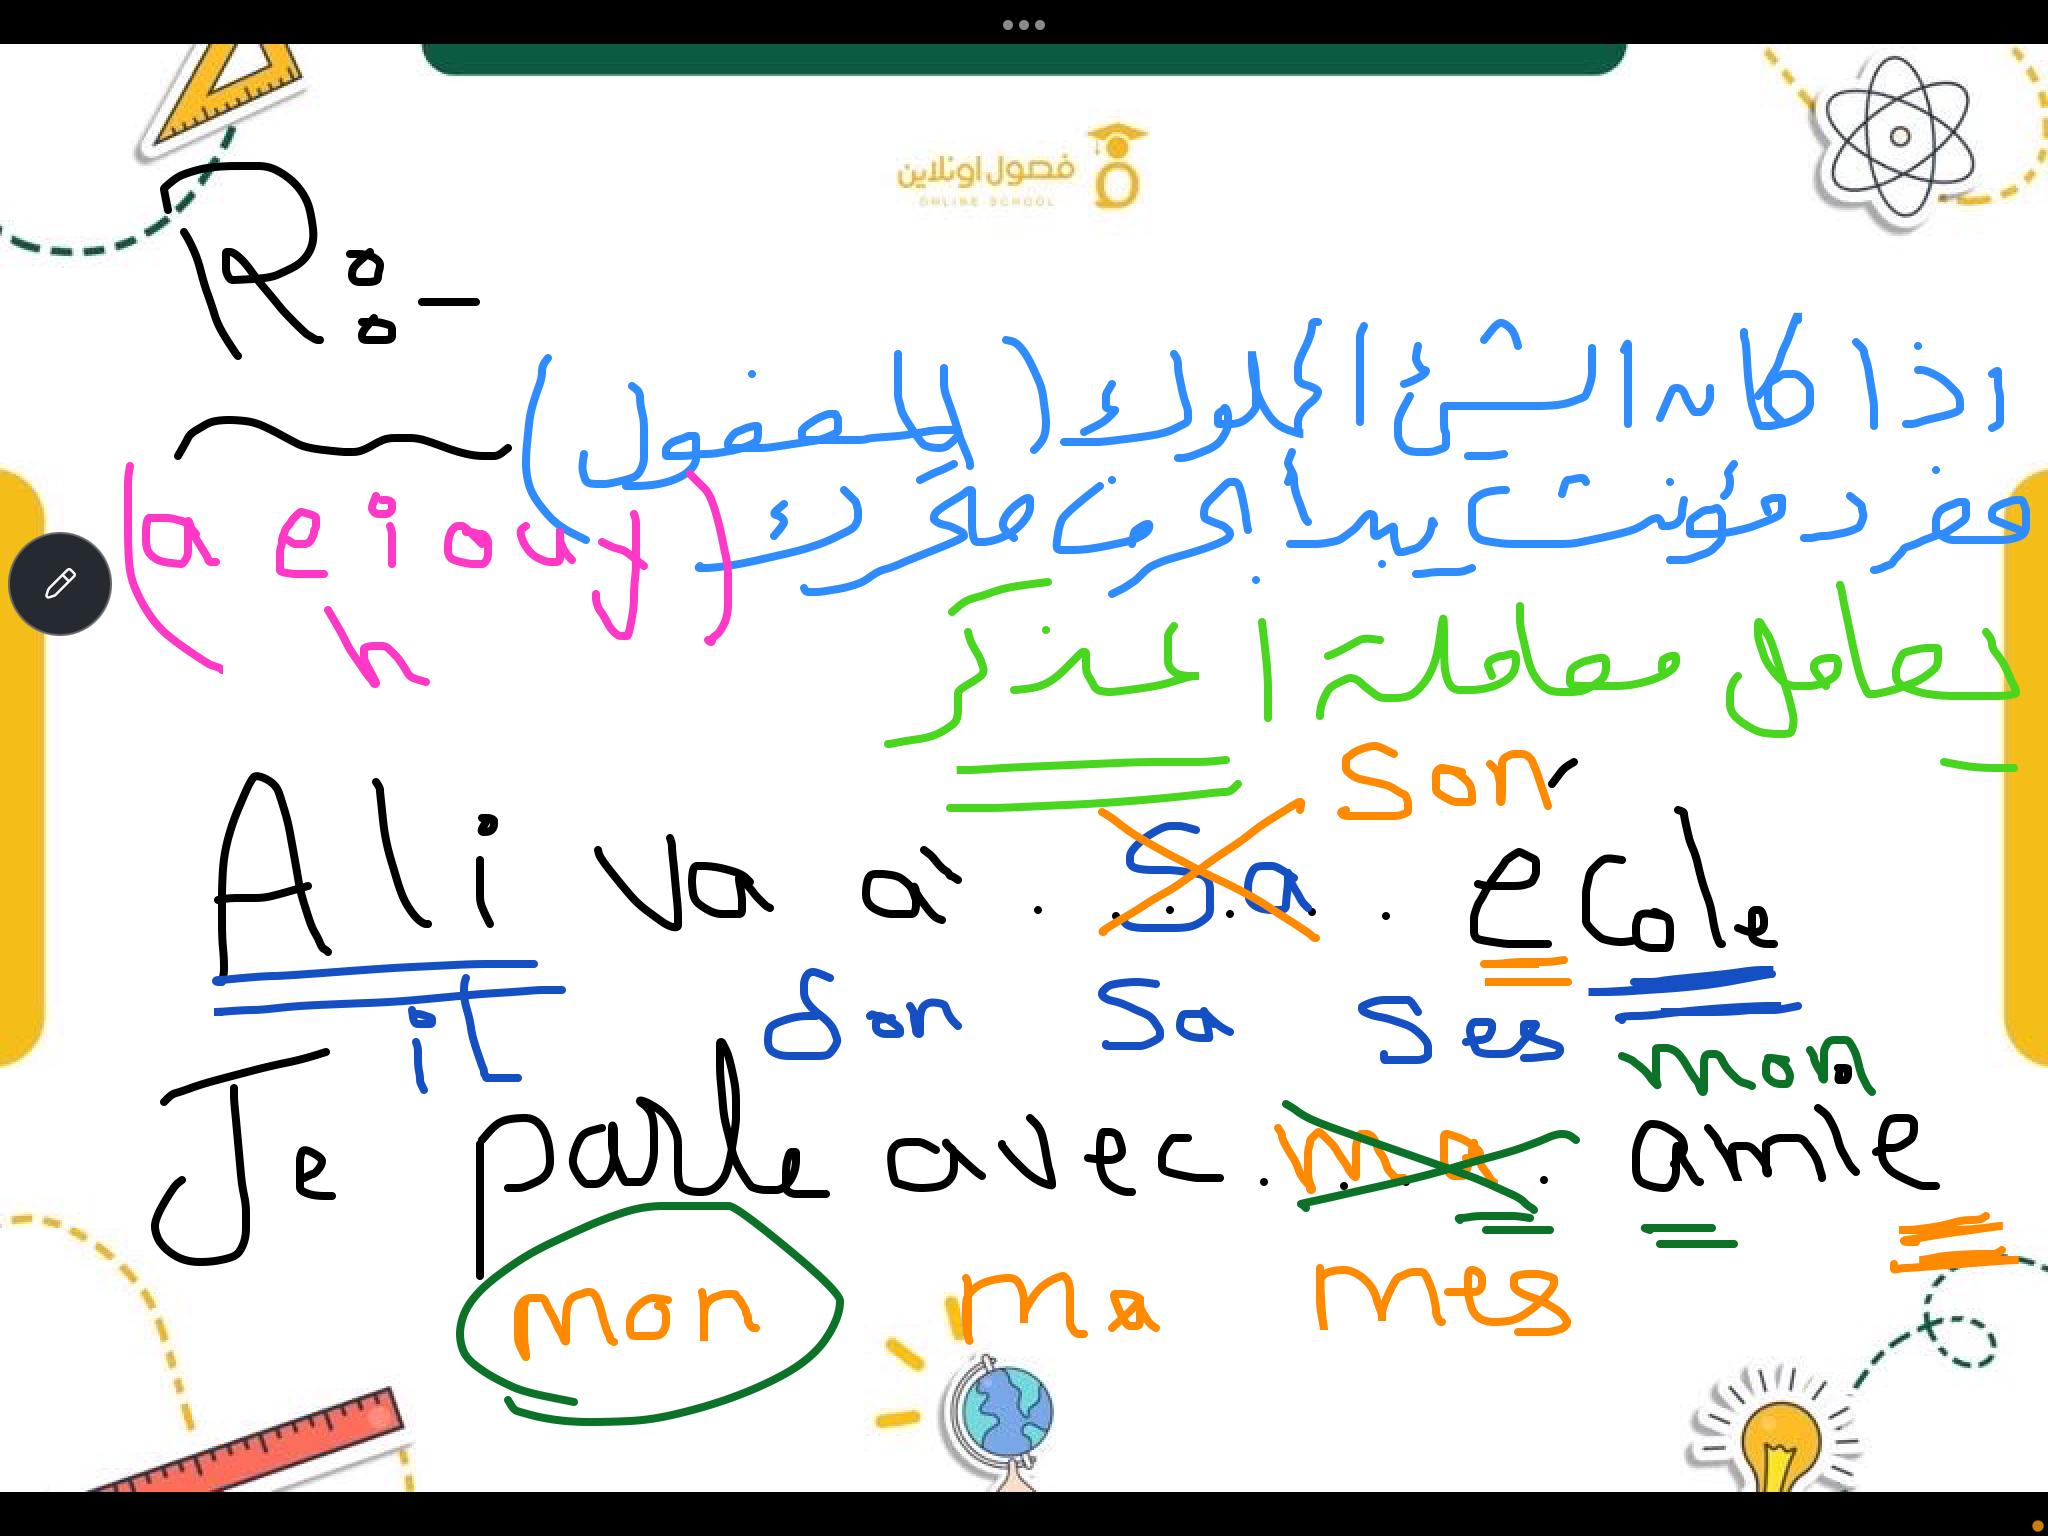 فصول اونلاين
ONLINE SCHOOL
R:-
اذا كان الشئ المملوك (المفعول)
مفرد مؤنث يبدأ بحرف متحرك (a e i o u y
h)
نعامل معاملة المذكر
Son
Ali va à . Sa . ecole
il son sa ses
mon
Je parle avec . ma . amie
mon ma mes